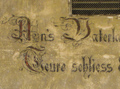 Ans Vaterl
Teure schliess